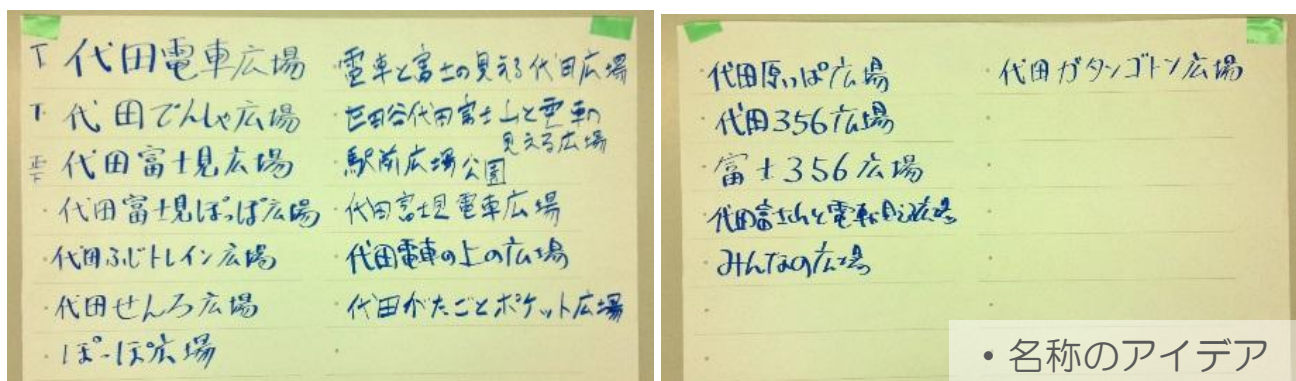 代田電車広場
代田でんしゃ広場
代田富士見広場
・代田富士見ぽっぽ広場
・代田ふじトレイン広場
・代田せんろ広場
・ぽっぽ広場
・電車と富士の見える代田広場
・世田谷代田富士山と電車の
見える広場
・駅前広場公園
・代田富士見電車広場
・代田電車の上の広場
・代田がたごとポケット広場
・代田原っぱ広場
・代田356広場
・富士356広場
・代田富士山と電車が見える広場
・みんなの広場
・代田ガタンゴトン広場
・名称のアイデア